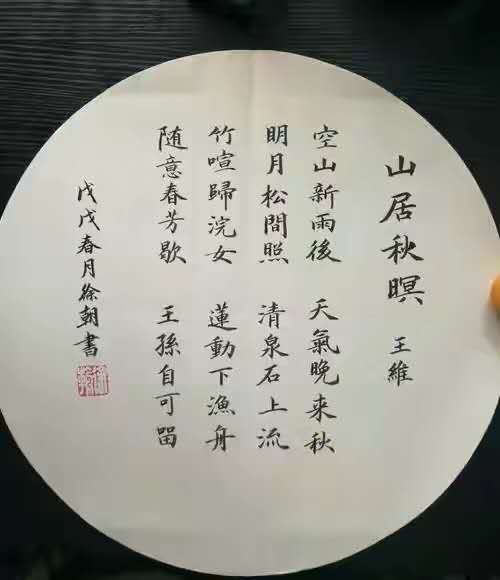 山居秋暝 王維
空山新雨後 天氣晚来秋
明月松間照 清泉石上流
竹喧歸浣女 蓮動下漁舟
随意春芳歇 王孫自可留
戊戌春月徐朝書